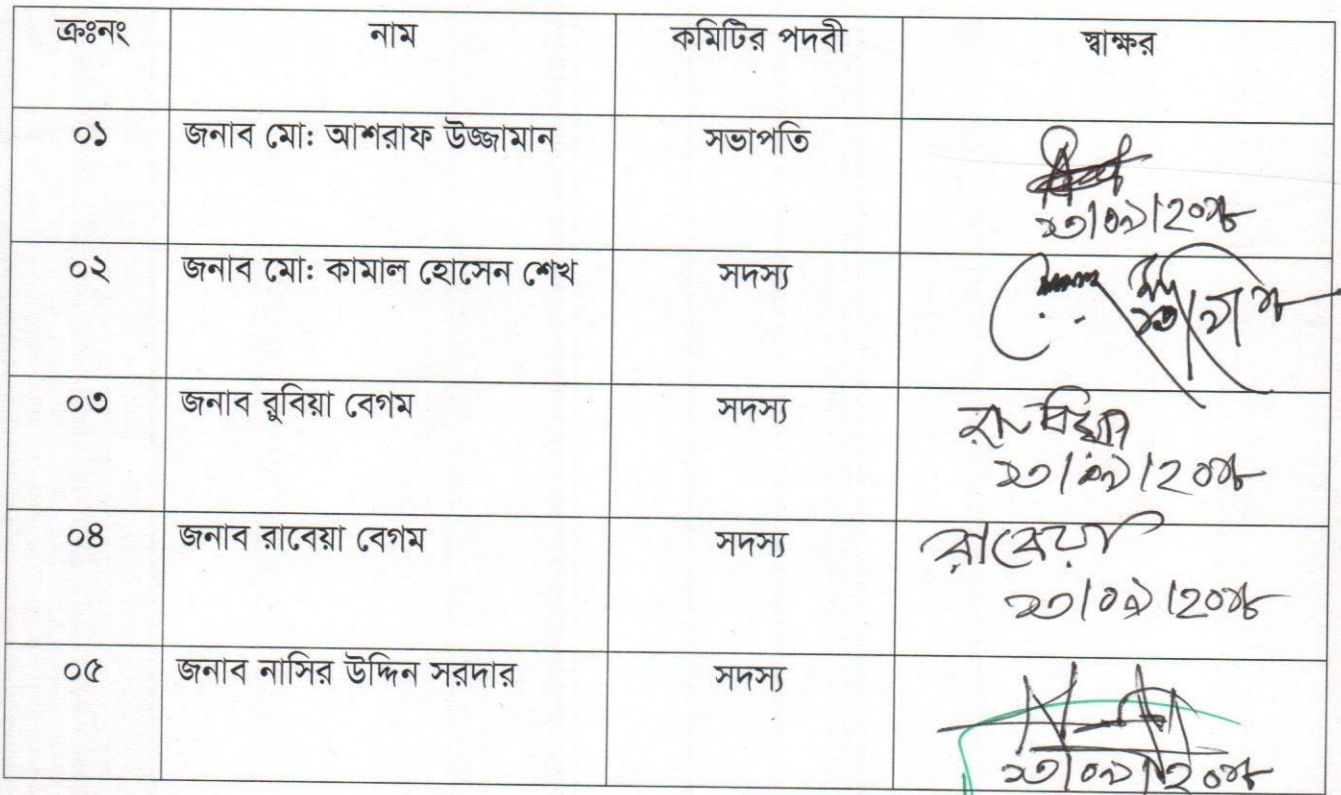 ক্রঃনং নাম কমিটির পদবী স্বাক্ষর
০১ জনাব মো: আশরাফ উজ্জামান সভাপতি
১৩/০৯/২০১৮
০২ জনাব মো: কামাল হোসেন শেখ সদস্য
০৩ জনাব রুবিয়া বেগম সদস্য রুবিয়া
১৩/০৯/২০১৮
০৪ জনাব রাবেয়া বেগম সদস্য রাবেয়া
১৩/০৯/২০১৮
০৫ জনাব নাসির উদ্দিন সরদার সদস্য
১৩/০৯/২০১৮